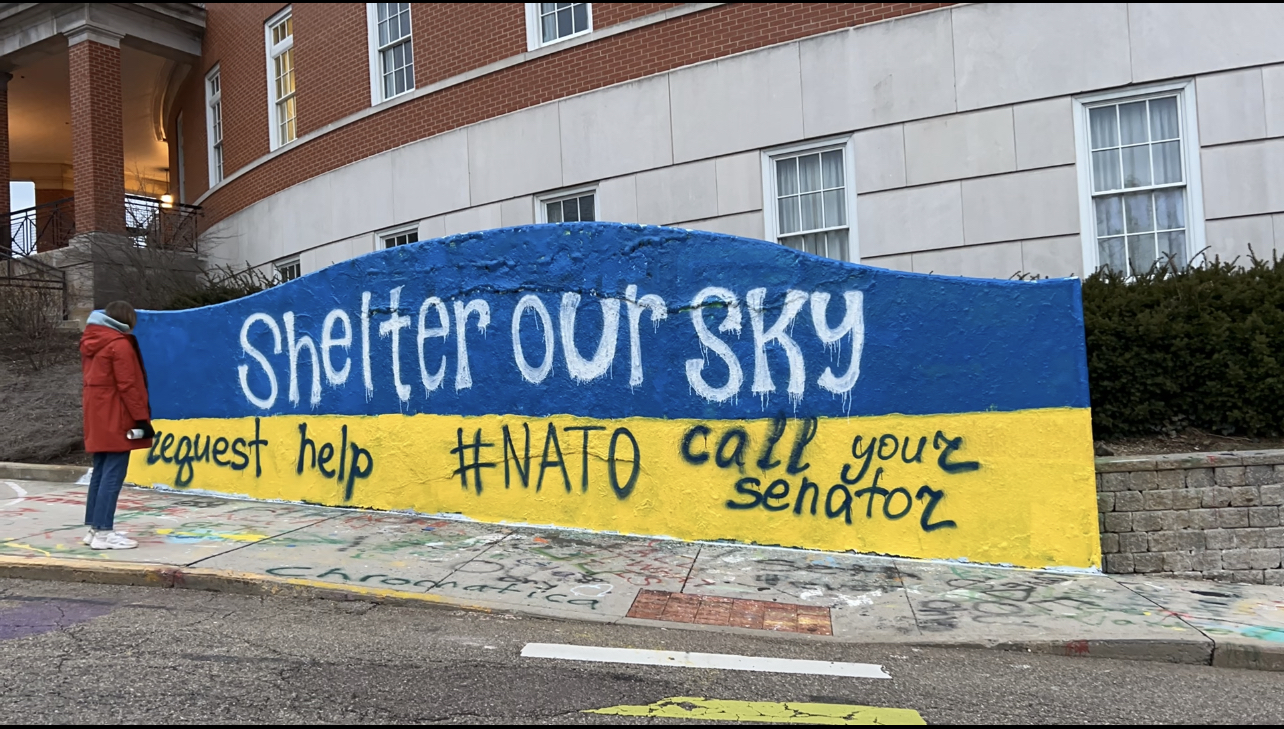 Shelter our sky
request help #NATO call your
senator
chromatica